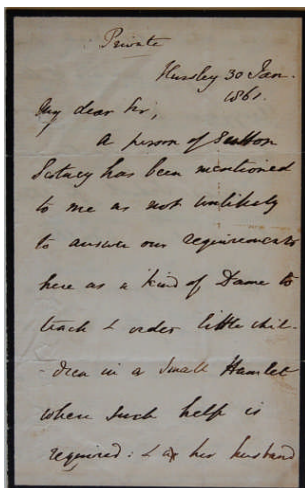 Private
Hursley 30 Jan.
1861.
My dear Sir,
A person of Sutton
Scotney has been mentioned
to me as not unlikely
to answer our requirements
here as a kind of Dame to
teach & order little chil-
-dren in a small Hamlet
where such help is
required: & as her husband